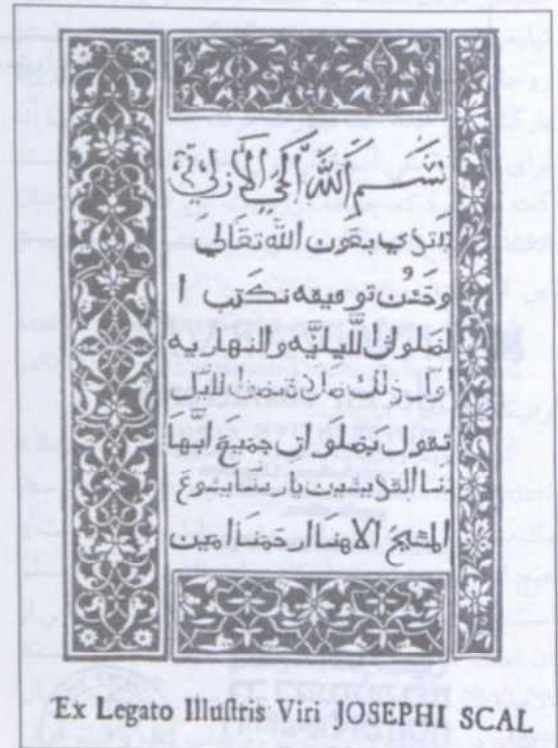 بسم الله الحي الازلي ن
بتدي بعون الله تعالي
وحسن توفيقه نكتب ا
لصلواث الليليه والنهاريه
اول ذلك صلاة نصف الليل
تقول بصلوات جميع ابها
تنا القديسين يا ربنا يسوع
المسيح الاهنا ارحمنا امين
Ex Legato Illuſtris Viri JOSEPHI SCAL